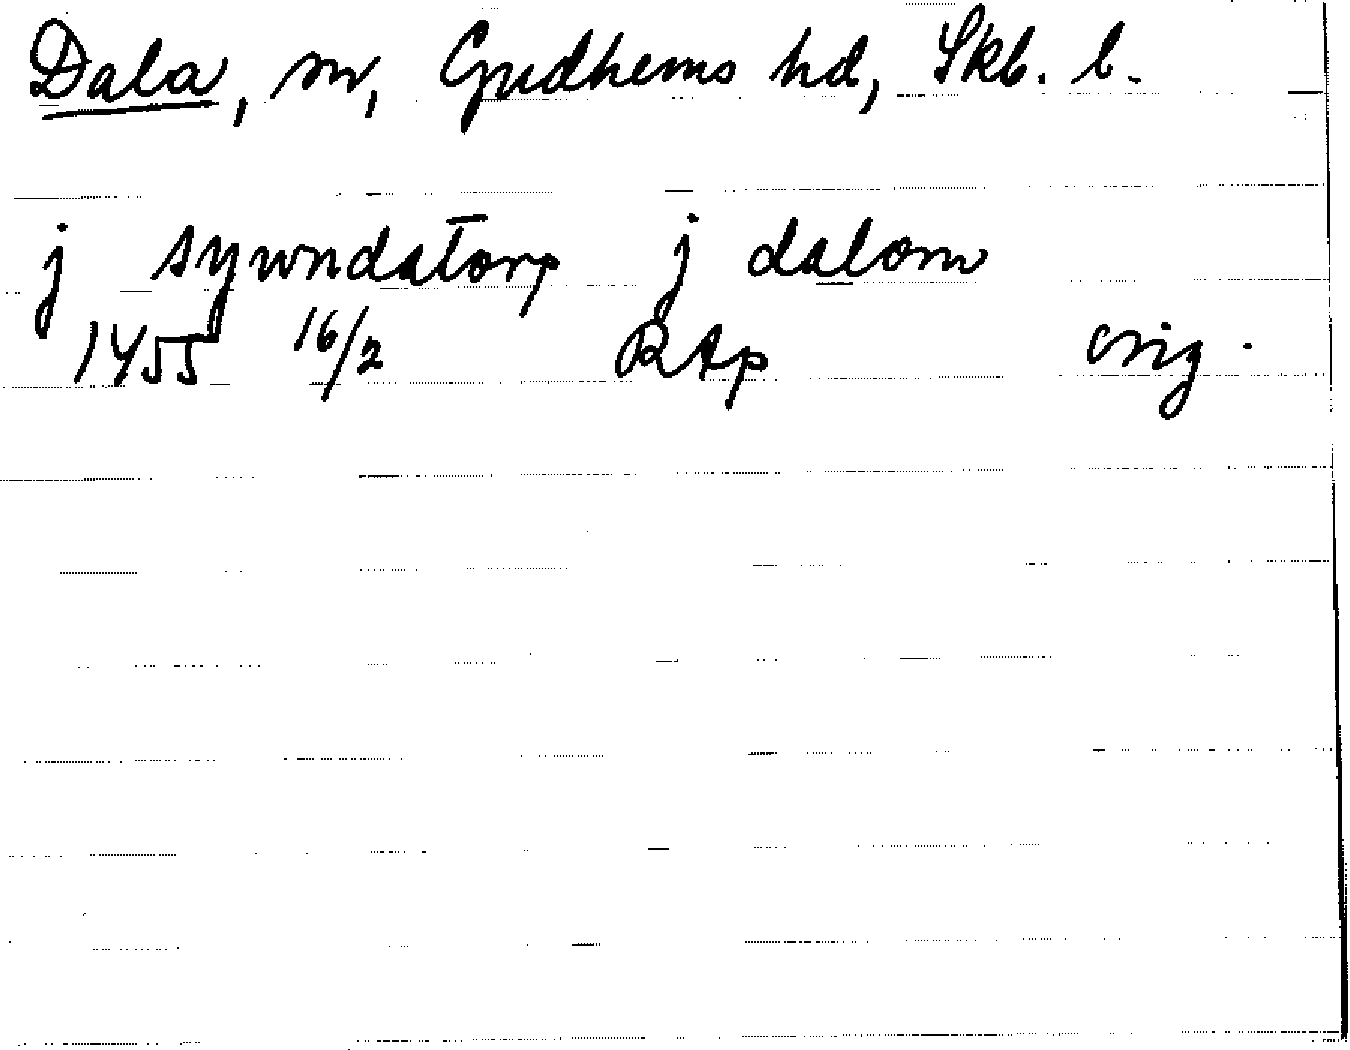 Dala, sn, Gudhems hd, Skb. l.
j sywndatorp j dalom
1455 16/2 RAp orig.